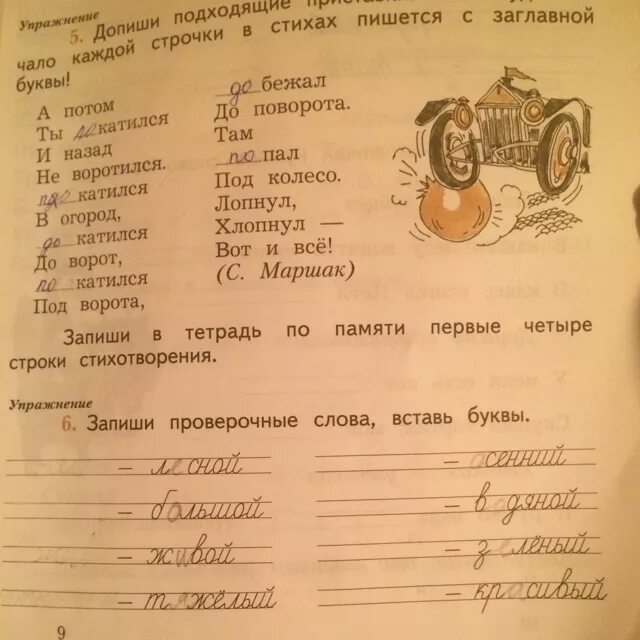 Упражнение
5. Допиши подходящие
чало каждой строчки в стихах пишется с заглавной
буквы!
А потом
Ты покатился
И назад
Не воротился.
про катился
В огород,
до катился
До ворот,
по катился
Под ворота,
до бежал
До поворота.
Там
по пал
Под колесо.
Лопнул,
Хлопнул —
Вот и всё!
(С. Маршак)
Запиши в тетрадь по памяти первые четыре
строки стихотворения.
Упражнение
6. Запиши проверочные слова, вставь буквы.
– лесной
– большой
– живой
– тяжёлый
– осенний
– водяной
– зелёный
– красивый
9